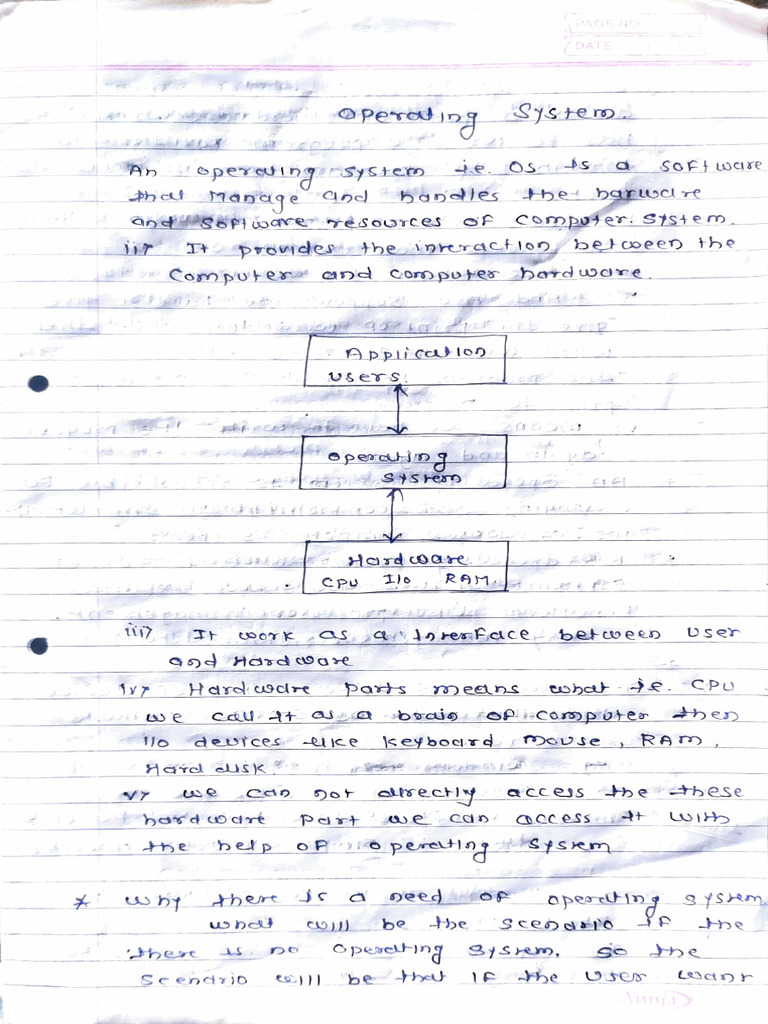 PAGE NO.
DATE
Operating System.
An operating system i.e. OS is a software
that Manage and handles the harware
and software resources of computer. System.
ii> It provides the inreraction between the
Computer and computer hardware.
Application
users.
Operating
System
Hardware
CPU I/o RAM
iii> It work as a Interface between user
and Hardware
iv> Hardware parts means what i.e. CPU
we call it as a brain of computer then
I/o devices like keyboard mouse, RAM,
Hard disk.
v> we can not directly access the these
hardware part we can access it with
the help of operating system
* Why there is a need of operating system
what will be the scenario if the
there is no operating system. so the
scenario will be that if the user want